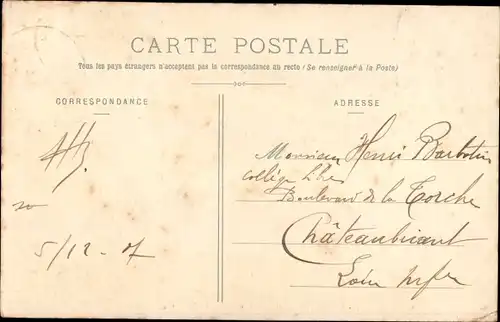 CARTE POSTALE
Tous les pays étrangers n'acceptent pas la correspondance au recto (Se renseigner à la Poste)
CORRESPONDANCE
ADRESSE
Monsieur Henri Barbotin
collège libre
Boulevard de la Torche
Châteaubriant
Loire Infre
5/12 - 07